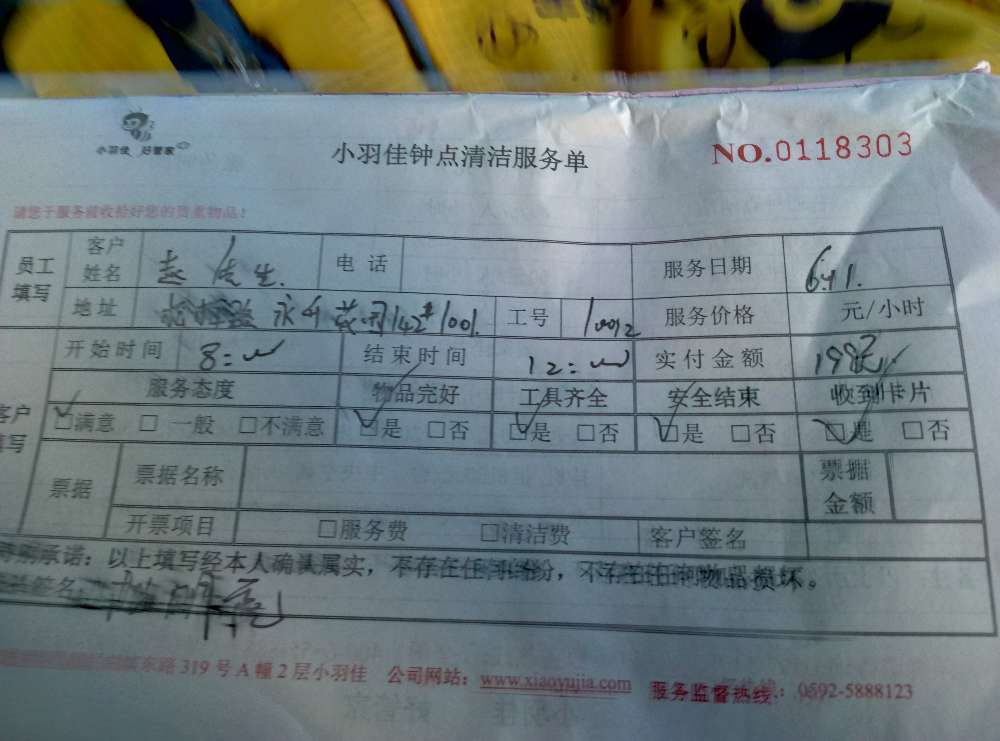 小羽佳 好管家
小羽佳钟点清洁服务单
NO.0118303
请您于服务前收拾好您的贵重物品!
员工填写 客户姓名 赵先生. 电话 服务日期 6月1.
地址 142# 1001. 工号 服务价格 元/小时
开始时间 8: 结束时间 12: 实付金额
服务态度 物品完好 工具齐全 安全结束 收到卡片
客户填写 ☑满意 □一般 □不满意 ☑是 □否 ☑是 □否 ☑是 □否 ☑是 □否
票据 票据名称 票据金额
开票项目 □服务费 □清洁费 客户签名
承诺：以上填写经本人确认属实，不存在任何纠纷，不存在任何物品损坏。
签名
东路319号A幢2层小羽佳 公司网站：www.xiaoyujia.com 服务监督热线：0592-5888123